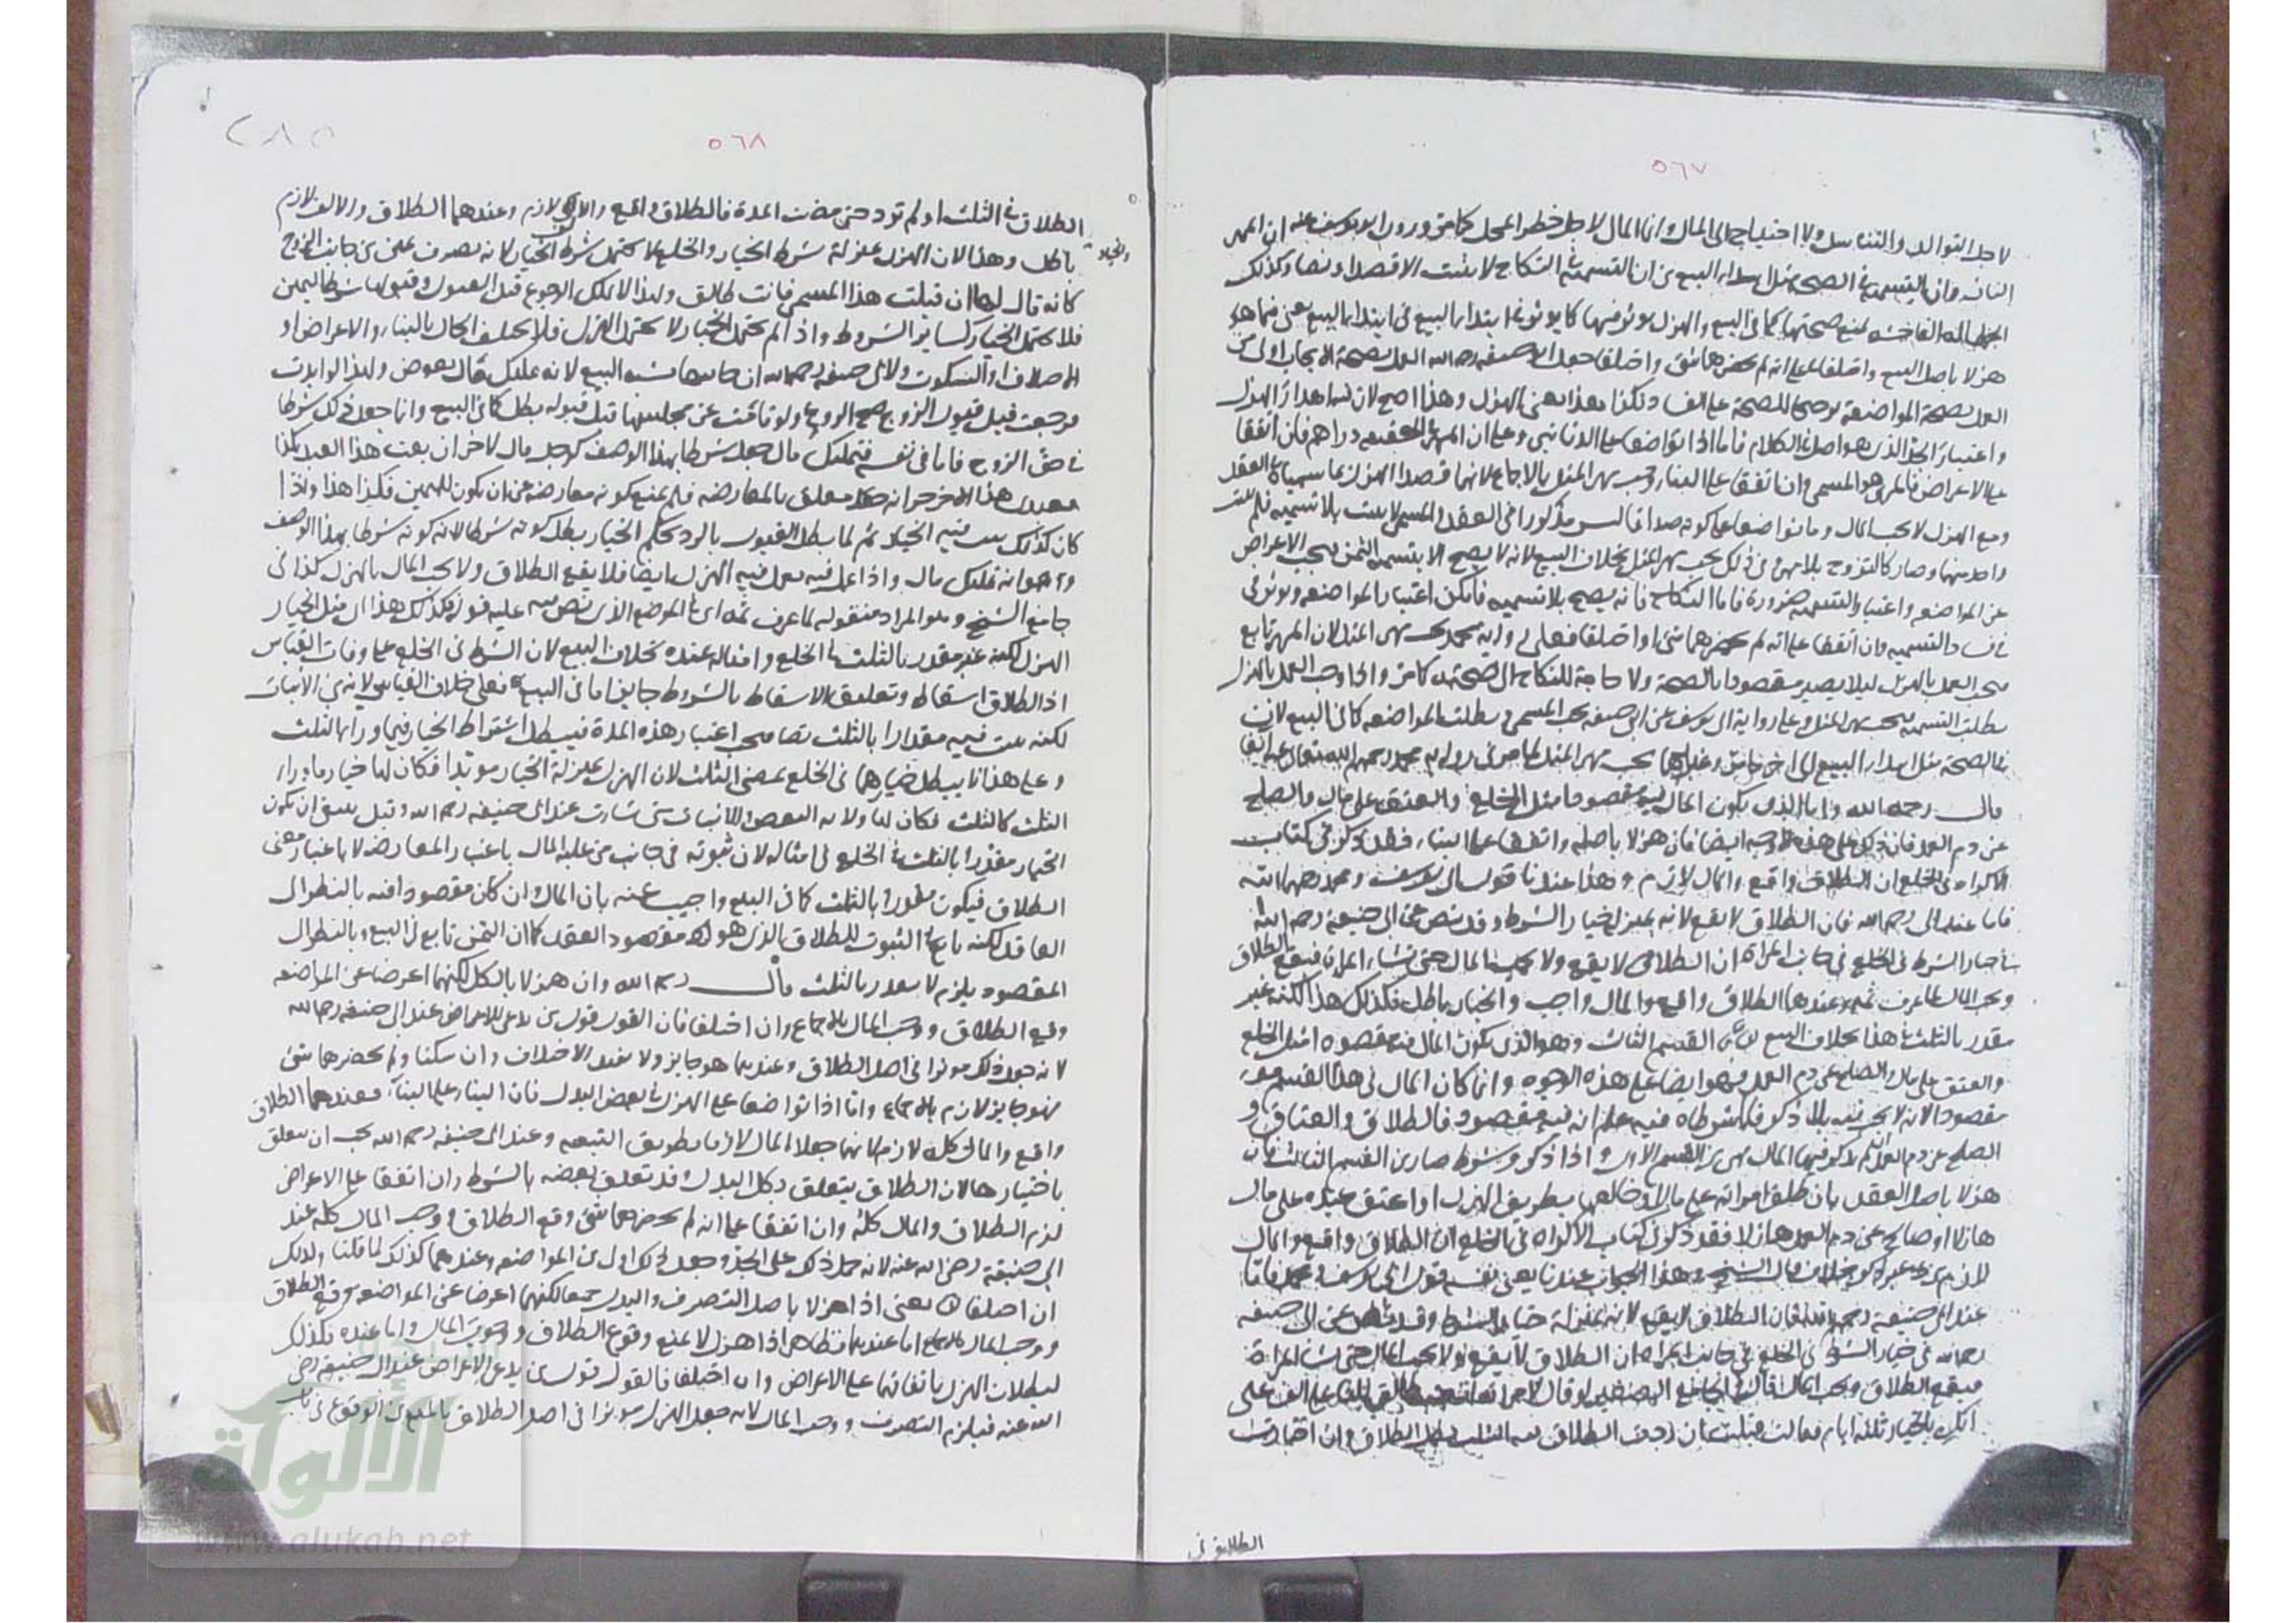 ٥٦٧
لاجل التوالد والتناسل ولا احتياج الى المال وانما المال لاجل خطر المحل كما مر وروى ابو يوسف عنه ان المهر
الفان وان التسمية في الصحة مثل ابتداء البيع من ان التسمية في النكاح لا يثبت الا قصدا ونصا وكذلك
هزلا باصل البيع واتفقا على انه لم يحضرهما شئ واختلفا جعل ابو حنيفة رحمه الله العمل بصحة الايجاب اولى من
العمل بصحة المواضعة
واعتبار الجد الذي هو اصل في الكلام فاما اذا تواضعا على الدنانير وعلى ان المهر في الحقيقة دراهم فان اتفقا
على الاعراض فالمهر هو المسمى وان اتفقا على البناء وجب مهر المثل بالاجماع لانهما قصدا الهزل بما سمياه في العقد
ومع الهزل لا يجب المال وما تواضعا على كونه صداقا ليس مذكورا في العقد والمسمى لا يثبت بلا تسمية فلم يثبت
واحد منهما وصار كالتزوج بلا مهر وفي ذلك يجب مهر المثل بخلاف البيع لانه لا يصح الا بتسمية الثمن فيجب الاعراض
عن المواضعة واعتبار التسمية ضرورة فاما النكاح فانه يصح بلا تسمية فامكن اعتبار المواضعة
وان اتفقا على انه لم يحضرهما شئ او اختلفا فعلى رواية محمد يجب مهر المثل لان المهر تابع
يجب العمل بالهزل ليلا يصير مقصودا بالصحة ولا حاجة للنكاح الى صحته كما مر
بطلت التسمية فيجب مهر المثل وعلى رواية ابي يوسف عن ابي حنيفة يجب المسمى وبطلت المواضعة كما في البيع
قال رحمه الله واما الذي يكون المال فيه مقصودا مثل الخلع والعتق على مال والصلح
عن دم العمد فان ذلك على هذه الاوجه ايضا فان هزلا باصله واتفقا على البناء فقد ذكر في كتاب
الاكراه في الخلع ان الطلاق واقع والمال لازم وهذا عندنا قول ابي يوسف ومحمد رحمهما الله
فاما عند ابي رحمه الله فان الطلاق لا يقع لانه بمنزلة خيار الشرط وقد نص عن ابي حنيفة رحمه الله
في خيار الشرط في الخلع في جانب المراة ان الطلاق لا يقع ولا يجب المال حتى تشاء المراة فيقع الطلاق
ويجب المال لما عرف ثمه وعندهما الطلاق واقع والمال واجب والخيار باطل فكذلك هذا لكنه غير
مقدر بالثلث في هذا بخلاف البيع القسم الثالث وهو الذي يكون المال فيه مقصودا مثل الخلع
والعتق على مال والصلح عن دم العمد وهو ايضا على هذه الوجوه وانما كان المال في هذا القسم
مقصودا لانه لا يجب فيه بلا ذكر فلما شرطاه فيه علم انه فيه مقصود فالطلاق والعتاق و
الصلح عن دم العمد ان لم يذكر فيها المال من القسم الاول واذا ذكر وشرط صار من القسم الثالث فان
هزلا باصل العقد بان طلق امراته على مال او خالعها بطريق الهزل او اعتق عبده على مال
هازلا او صالح عن دم العمد هازلا فقد ذكر في كتاب الاكراه في الخلع ان الطلاق واقع والمال
لازم وهذا الجواب عندنا يعني نفسه قول ابي يوسف ومحمد فاما
عند ابي حنيفة رحمه الله فان الطلاق لا يقع لانه بمنزلة خيار الشرط وقد نص عن ابي حنيفة
رحمه الله في خيار الشرط في الخلع في جانب المراة ان الطلاق لا يقع ولا يجب المال حتى تشاء المراة
فيقع الطلاق ويجب المال قال في الجامع الصغير لو قال لامراته انت طالق على الف على
انك بالخيار ثلثة ايام فقالت قبلت فان ردت الطلاق في الثلث بطل الطلاق وان اختارت
الطلاق في
٥٦٨
٢٨٥
الطلاق في الثلث او لم ترد حتى مضت المدة فالطلاق واقع والالف لازم وعندهما الطلاق والالف لازم
والخيار
باطل وهذا لان الهزل بمنزلة شرط الخيار والخلع لا يحتمل شرط الخيار لانه تصرف يمين من جانب الزوج
كانه قال لها ان قبلت هذا المسمى فانت طالق ولهذا لا يملك الرجوع قبل القبول وقبولها شرط اليمين
فلا يحتمل الخيار كسائر الشروط واذا لم يحتمل الخيار لا يحتمل الهزل فلا يختلف الحال بالبناء والاعراض او
الاختلاف او السكوت ولابي حنيفة رحمه الله ان جانبها يشبه البيع لانه تمليك مال بعوض ولهذا لو ابدت
فرجعت قبل قبول الزوج صح الرجوع ولو قامت عن مجلسها قبل قبوله بطل كما في البيع وانما جعل ذلك شرطا
في حق الزوج فاما في نفسه فتمليك مال جعل شرطا بهذا الوصف كرجل قال لاخر ان بعت هذا العبد بكذا
كان كذلك يثبت فيه الخيار ثم لما بطل القبول بالرد بحكم الخيار بطل كونه شرطا لانه كونه شرطا بهذا الوصف
وهو انه تمليك مال واذا عمل فيه يعمل فيه الهزل ايضا فلا يقع الطلاق ولا يجب المال بالهزل كذا في
جامع الشيخ وهو المراد منقوله لما عرف ثمه اي في الموضع الذي نص عليه قوله فكذلك هذا اي مثل الخيار
الهزل لكنه غير مقدر بالثلث في الخلع وامثاله عنده بخلاف البيع لان الشرط في الخلع على وفاق القياس
اذ الطلاق اسقاط وتعليق الاسقاط بالشروط جايز اما في البيع فعلى خلاف القياس لانه من الاثبات
لكنه ثبت فيه مقدرا بالثلث نصا فيجب اعتبار هذه المدة فيبطل اشتراط الخيار فيما وراء الثلث
وعلى هذا لا يبطل خيارها في الخلع بمضي الثلث لان الهزل بمنزلة الخيار مؤبدا فكان لها خيار ما وراء
الثلث كالثلث فكان لها ولاية النقض والاثبات متى شاءت عند ابي حنيفة رحمه الله وقيل ينبغي ان يكون
الخيار مقدرا بالثلث في الخلع في امثاله لان ثبوته في جانب من عليه المال باعتبار المعارضة لا باعتبار معنى
الطلاق فيكون مقدرا بالثلث كما في البيع واجيب عنه بان المال وان كان مقصودا فيه بالنظر الى
العاقد لكنه تابع في الثبوت للطلاق الذي هو مقصود العقد كما ان الثمن تابع في البيع وبالنظر الى
المقصود يلزم لا يقدر بالثلث قال رحمه الله وان هزلا بالكل لكنهما اعرضا عن المواضعة
وقع الطلاق ووجب المال بالاجماع وان اختلفا فان القول قول من يدعي الاعراض عند ابي حنيفة رحمه الله
لانه جعل ذلك موثرا في اصل الطلاق وعندهما هو جايز ولا يفيد الاختلاف وان سكتا ولم يحضرهما شئ
فهو جايز لازم بالاجماع واما اذا تواضعا على الهزل في بعض البدل فان اتفقا على البناء فعندهما الطلاق
واقع والمال كله لازم لانهما جعلا المال لازما بطريق التبعية وعند ابي حنيفة رحمه الله يجب ان يتعلق
باختيارها لان الطلاق يتعلق بكل البدل وقد تعلق بعضه بالشرط وان اتفقا على الاعراض
لزم الطلاق والمال كله وان اتفقا على انه لم يحضرهما شئ وقع الطلاق ووجب المال كله عند
ابي حنيفة رضي الله عنه لانه حمل ذلك على الجد وجعل ذلك اولى من المواضعة وعندهما كذلك لما قلنا وكذلك
ان اختلفا يعني اذا هزلا باصل التصرف والبدل جميعا لكنهما اعرضا عن المواضعة وقع الطلاق
ووجب المال بالاجماع اما عندهما فظاهر اذا هزل لا يمنع وقوع الطلاق ووجوب المال واما عنده فكذلك
لبطلان الهزل باتفاقهما على الاعراض وان اختلفا فالقول قول من يدعي الاعراض عند ابي حنيفة رضي
الله عنه فيلزم التصرف ووجب المال لانه جعل الهزل موثرا في اصل الطلاق
الألوكة
www.alukah.net